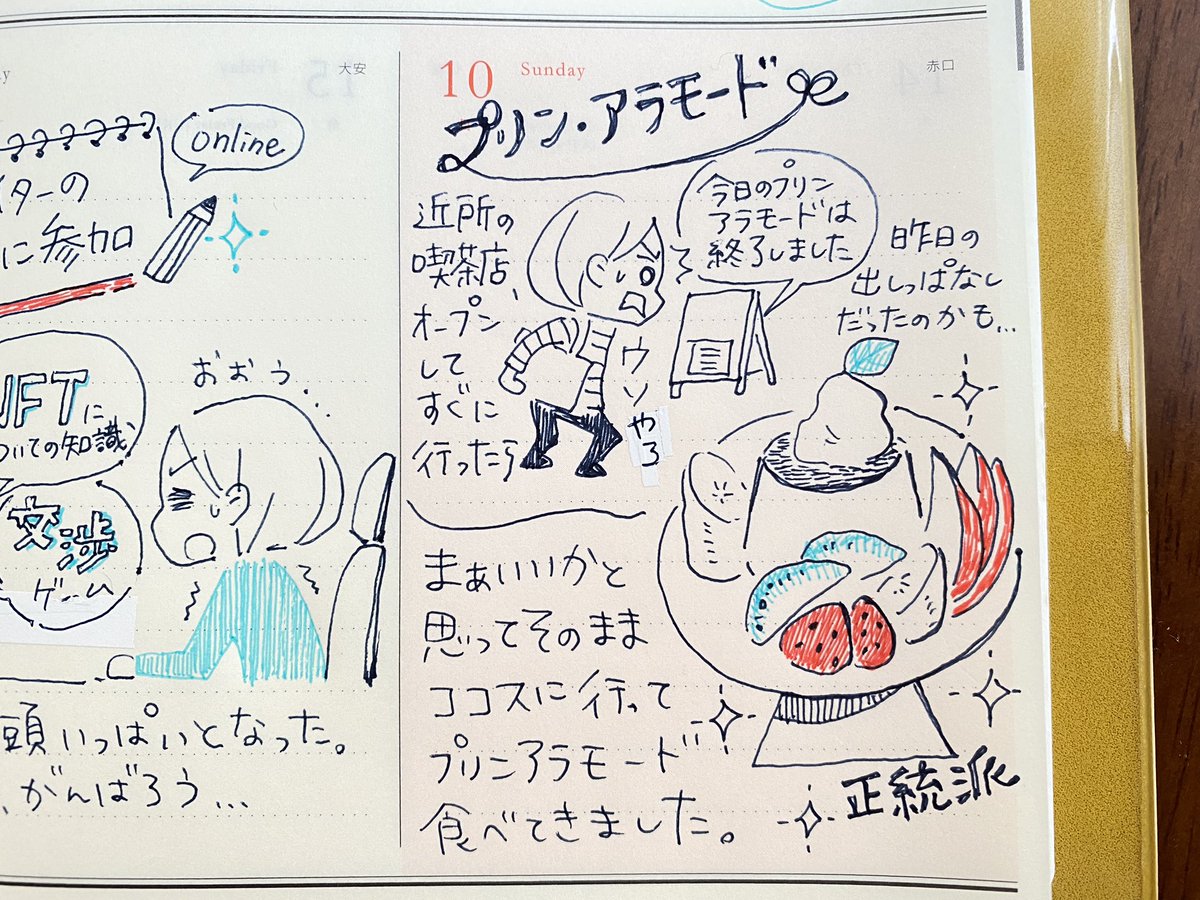 大安
online
イターの
に参加
NFTに
ついての知識
交渉
ゲーム
おおう...
頭いっぱいとなった。
、がんばろう...
10 Sunday
赤口
プリン・アラモード
近所の
喫茶店、
オープン
して
すぐに
行ったら
今日のプリン
アラモードは
終了しました
ウソ
やろ
昨日の
出しっぱなし
だったのかも...
まぁいいかと
思ってそのまま
ココスに行って
プリンアラモード
食べてきました。
正統派